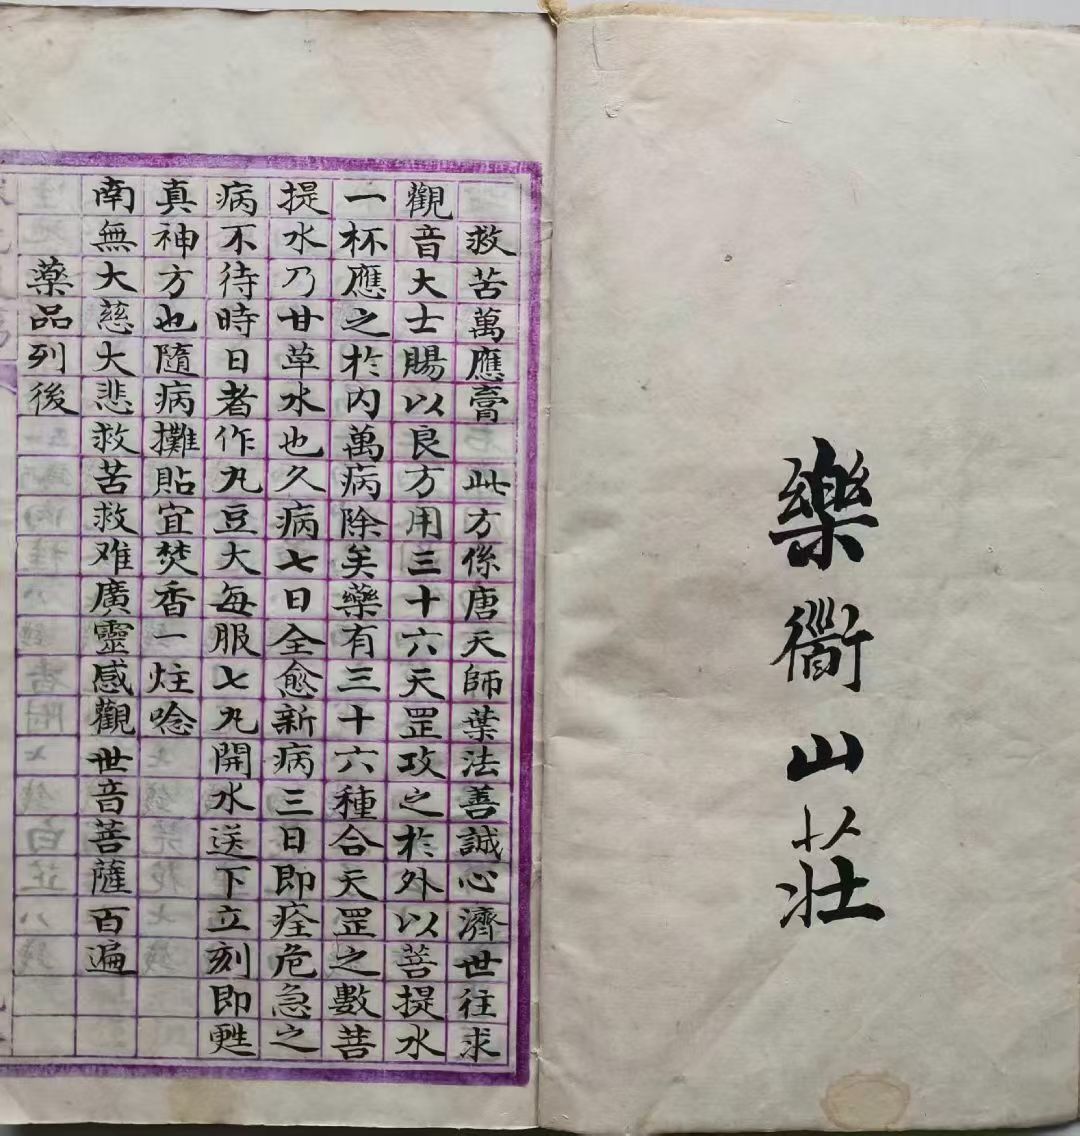 樂衢山莊
救苦萬應膏 此方係唐天師葉法善誠心濟世往求
觀音大士賜以良方用三十六天罡攻之於外以菩提水
一杯應之於内萬病除矣藥有三十六種合天罡之數菩
提水乃甘草水也久病七日全愈新病三日即痊危急之
病不待時日者作丸豆大每服七丸開水送下立刻即甦
真神方也隨病攤貼宜焚香一炷唸
南無大慈大悲救苦救难廣靈感觀世音菩薩百遍
藥品列後